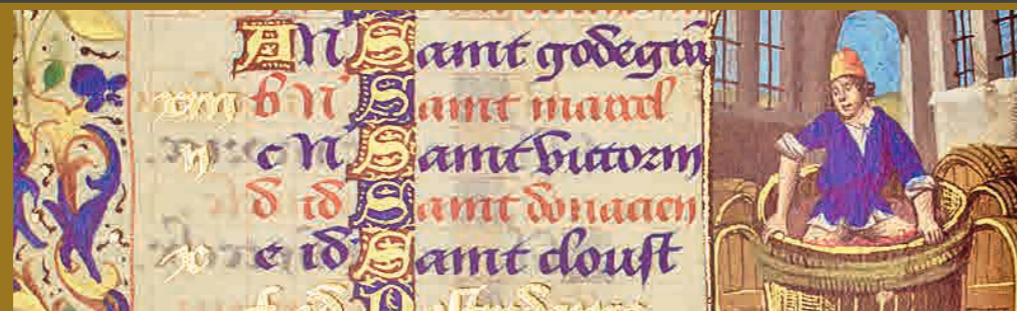 A N Saint godegrā
b N Saint marcel
n c N Saint victorin
d id Saint donacien
x e id Saint cloust